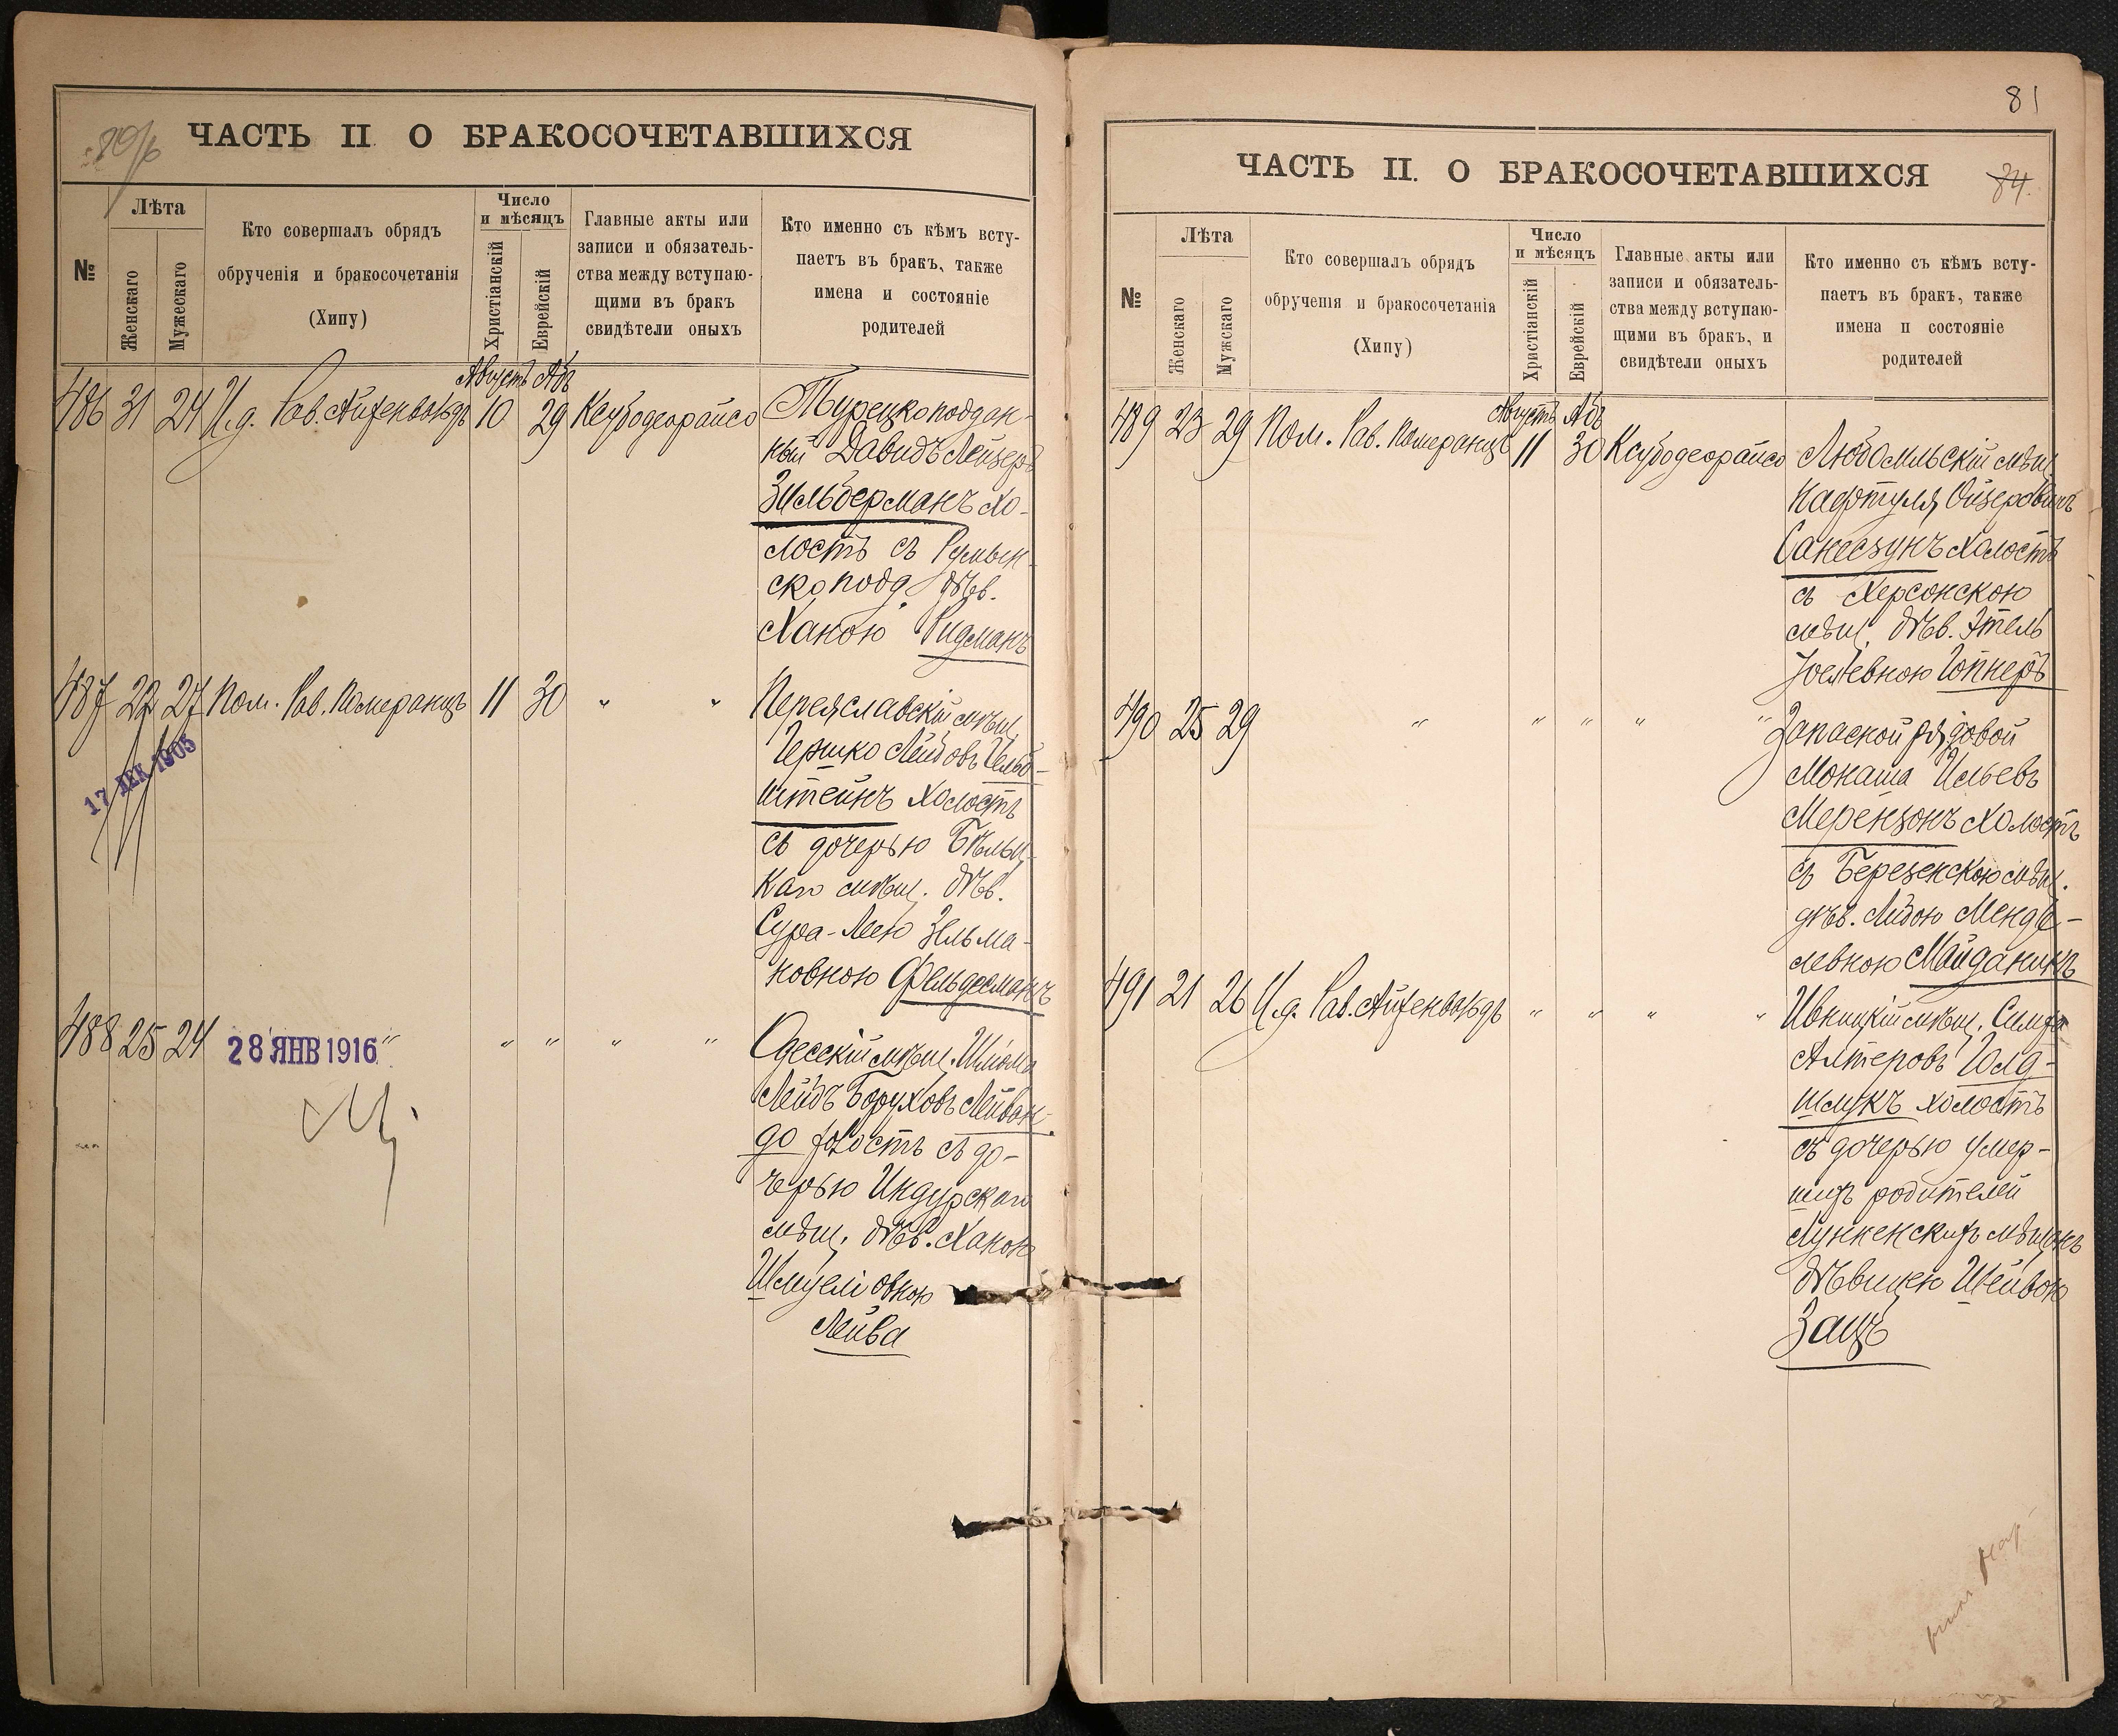 ЧАСТЬ II О БРАКОСОЧЕТАВШИХСЯ
№
Лѣта
Женскаго
Мужескаго
Кто совершалъ обрядъ
обрученія и бракосочетанія
(Хипу)
Число
и мѣсяцъ
Христіанскій
Еврейскій
Главные акты или
записи и обязатель-
ства между вступаю-
щими въ бракъ
свидѣтели оныхъ
Кто именно съ кѣмъ всту-
паетъ въ бракъ, также
имена и состояніе
родителей
Августъ Абъ
486 31 24 И.д. Рав. Айзенвальдъ 10 29 Ксубодеорайсо Турецкоподдан-
ный Давидъ Лейзеръ
Зильберманъ хо-
лостъ съ Румын-
скоподд. дѣв.
Ханою Ридманъ
487 22 27 Пом. Рав. Померанцъ 11 30 " " Переяславскій мѣщ.
Гершко Лейбовъ Гельб-
штейнъ холостъ
съ дочерью Бѣльц-
каго мѣщ. дѣв.
Сура-Леею Зельма-
новною Фельдманъ
17 ДЕК 1905
488 25 24 " " " " " Одесскій мѣщ. Шлома
Лейбъ Боруховъ Лейван-
до холостъ съ до-
черью Индурскаго
мѣщ. дѣв. Ханою
Шмуеліовною
Лейва
28 ЯНВ 1916
81
ЧАСТЬ II. О БРАКОСОЧЕТАВШИХСЯ
84.
№
Лѣта
Женскаго
Мужскаго
Кто совершалъ обрядъ
обрученія и бракосочетанія
(Хипу)
Число
и мѣсяцъ
Христіанскій
Еврейскій
Главные акты или
записи и обязатель-
ства между вступаю-
щими въ бракъ, и
свидѣтели оныхъ
Кто именно съ кѣмъ всту-
паетъ въ бракъ, также
имена и состояніе
родителей
Августъ Абъ
489 23 29 Пом. Рав. Померанцъ 11 30 Ксубодеорайсо Любомльскій мѣщ.
Нафтуля Ойзеровичъ
холостъ
съ Херсонскою
мѣщ. дѣв. Этель
Гопнеръ
490 25 29 " " " " " Запасной рядовой
Монаша Ильевъ
Мерензонъ холостъ
съ Березенскою мѣщ.
дѣв. Менде-
левною Майданикъ
491 21 26 И.д. Рав. Айзенвальдъ " " " " Ивницкій мѣщ. Симха
Алтеровъ Голд-
шмукъ холостъ
съ дочерью умер-
шихъ родителей
мѣщанъ
дѣвицею Шейвою
Зацъ